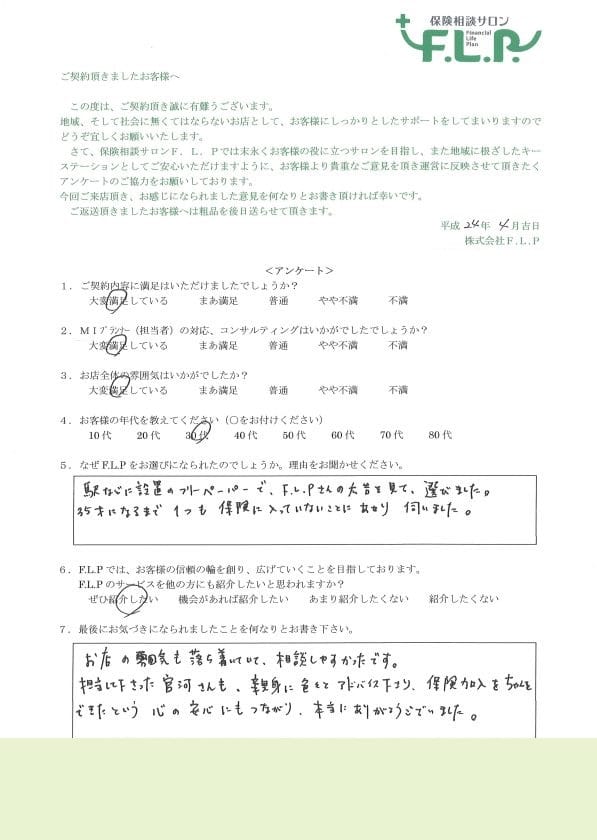 保険相談サロン
Financial
Life
Plan
F.L.P.
ご契約頂きましたお客様へ
この度は、ご契約頂き誠に有難うございます。
地域、そして社会に無くてはならないお店として、お客様にしっかりとしたサポートをしてまいりますので
どうぞ宜しくお願いいたします。
さて、保険相談サロンＦ．Ｌ．Ｐでは末永くお客様の役に立つサロンを目指し、また地域に根ざしたキー
ステーションとしてご安心いただけますように、お客様より貴重なご意見を頂き運営に反映させて頂きたく
アンケートのご協力をお願いしております。
今回ご来店頂き、お感じになられました意見を何なりとお書き頂ければ幸いです。
ご返送頂きましたお客様へは粗品を後日送らせて頂きます。
平成 24年 4月吉日
株式会社F.L.P
＜アンケート＞
１．ご契約内容に満足はいただけましたでしょうか？
大変満足している　まあ満足　普通　やや不満　不満
２．ＭＩﾌﾟﾗﾝﾅｰ（担当者）の対応、コンサルティングはいかがでしたでしょうか？
大変満足している　まあ満足　普通　やや不満　不満
３．お店全体の雰囲気はいかがでしたか？
大変満足している　まあ満足　普通　やや不満　不満
４．お客様の年代を教えてください（○をお付けください）
10代　20代　30代　40代　50代　60代　70代　80代
５．なぜF.L.Pをお選びになられたのでしょうか。理由をお聞かせください。
駅などに設置のフリーペーパーで、F.L.Pさんの広告を見て、選びました。
35才になるまで 1つも 保険に入っていないことに あせり 伺いました。
６．F.L.Pでは、お客様の信頼の輪を創り、広げていくことを目指しております。
F.L.Pのサービスを他の方にも紹介したいと思われますか？
ぜひ紹介したい　機会があれば紹介したい　あまり紹介したくない　紹介したくない
７．最後にお気づきになられましたことを何なりとお書き下さい。
お店の雰囲気も落ち着いていて、相談しやすかったです。
担当して下さった宮河さんも、親身に色々とアドバイス下さり、保険加入をちゃんと
できたという 心の安心にもつながり、本当にありがとうございました。